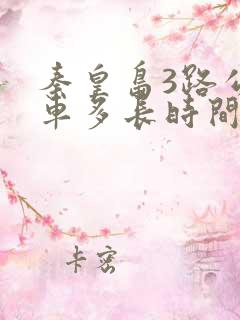 秦皇島3路公
車多長時間
卡密